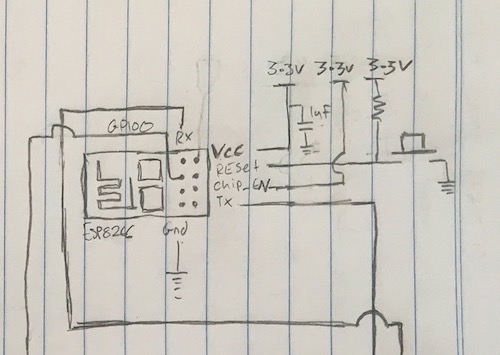 3.3V 3.3V 3.3V
1uf
GPIO0
Rx
Vcc
RESet
Chip_EN
Tx
ESP8266
Gnd